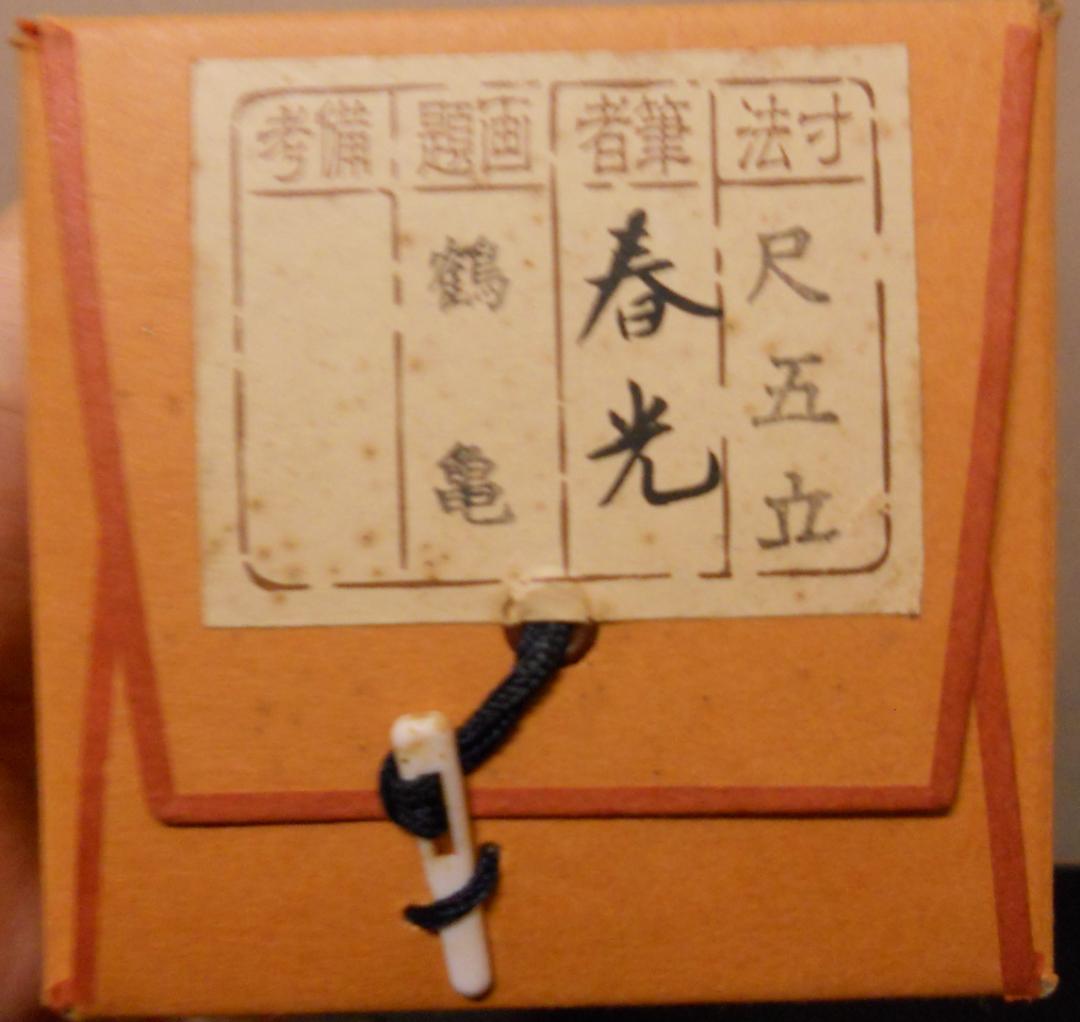 寸法
尺五立
筆者
春光
画題
鶴亀
備考